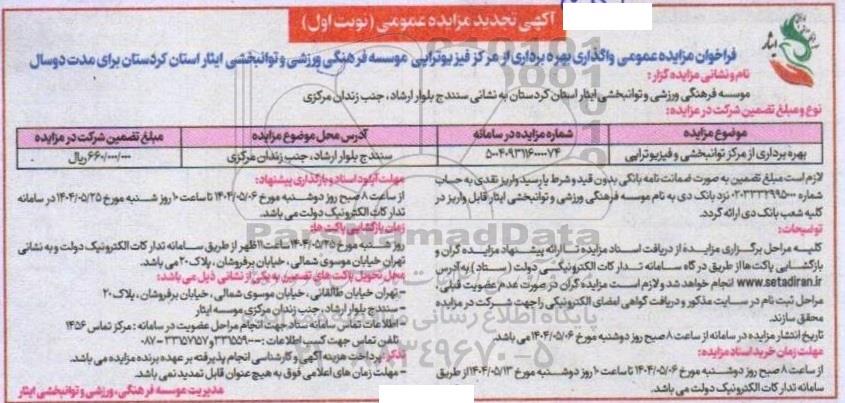 آگهی تجدید مزایده عمومی (نوبت اول)
فراخوان مزایده عمومی واگذاری بهره برداری از مرکز فیزیوتراپی موسسه فرهنگی ورزشی و توانبخشی ایثار استان کردستان برای مدت دو سال
نام و نشانی مزایده گزار:
موسسه فرهنگی ورزشی و توانبخشی ایثار استان کردستان به نشانی سنندج بلوار ارشاد، جنب زندان مرکزی
نوع و مبلغ تضمین شرکت در مزایده:
موضوع مزایده	شماره مزایده در سامانه	آدرس محل موضوع مزایده	مبلغ تضمین شرکت در مزایده
بهره برداری از مرکز توانبخشی و فیزیوتراپی	۵۰۰۴۰۹۳۱۱۶۰۰۰۰۷۴	سنندج بلوار ارشاد، جنب زندان مرکزی	۶۶۰/۰۰۰/۰۰۰ریال
لازم است مبلغ تضمین به صورت ضمانت نامه بانکی بدون قید و شرط یا رسید واریز نقدی به حساب
شماره ۰۲۰۳۳۳۲۹۹۵۰۰۰ نزد بانک دی به نام موسسه فرهنگی ورزشی و توانبخشی ایثار قابل واریز در
کلیه شعب بانک دی ارائه گردد.
توضیحات:
کلیه مراحل برگزاری مزایده از دریافت اسناد مزایده تا ارائه پیشنهاد مزایده گران و
بازگشایی پاکت‌ها از طریق درگاه سامانه تدارکات الکترونیکی دولت (ستاد) به آدرس
www.setadiran.ir انجام خواهد شد و لازم است مزایده گران در صورت عدم عضویت قبلی،
مراحل ثبت نام در سایت مذکور و دریافت گواهی امضای الکترونیکی را جهت شرکت در مزایده
محقق سازند.
تاریخ انتشار مزایده در سامانه از ساعت ۸ صبح روز دوشنبه مورخ ۱۴۰۴/۰۵/۰۶ می باشد.
مهلت زمان خرید اسناد مزایده:
از ساعت ۸ صبح روز دوشنبه مورخ ۱۴۰۴/۰۵/۰۶ تا ساعت ۱۰ روز دوشنبه مورخ ۱۴۰۴/۰۵/۱۳ از طریق
سامانه تدارکات الکترونیک دولت می باشد.
مهلت آپلود اسناد و بارگذاری پیشنهاد:
از ساعت ۸ صبح روز دوشنبه مورخ ۱۴۰۴/۰۵/۰۶ تا ساعت ۱۰ روز شنبه مورخ ۱۴۰۴/۰۵/۲۵ در سامانه
تدارکات الکترونیک دولت می باشد.
زمان بازگشایی پاکت ها:
روز شنبه مورخ ۱۴۰۴/۰۵/۲۵ ساعت ۱۱ ظهر از طریق سامانه تدارکات الکترونیک دولت و به نشانی
تهران خیابان موسوی شمالی، خیابان برفروشان، پلاک ۲۰ می باشد.
محل تحویل پاکت های تضمین به یکی از نشانی ذیل می باشد:
- تهران خیابان طالقانی، خیابان موسوی شمالی، خیابان برفروشان، پلاک ۲۰
- سنندج بلوار ارشاد، جنب زندان مرکزی موسسه ایثار
- اطلاعات تماس سامانه ستاد جهت انجام مراحل عضویت در سامانه: مرکز تماس ۱۴۵۶
تلفن تماس جهت کسب اطلاعات: ۳۳۵۵۹۰۰۰- ۳۳۵۷۷۵۷-۰۸۷
تذکر: پرداخت هزینه آگهی و کارشناسی انجام پذیرفته بر عهده برنده مزایده می باشد.
- مهلت زمان های اعلامی فوق به هیچ عنوان قابل تمدید نمی باشد.
مدیریت موسسه فرهنگی، ورزشی و توانبخشی ایثار
ParsNamadData
پایگاه اطلاع رسانی